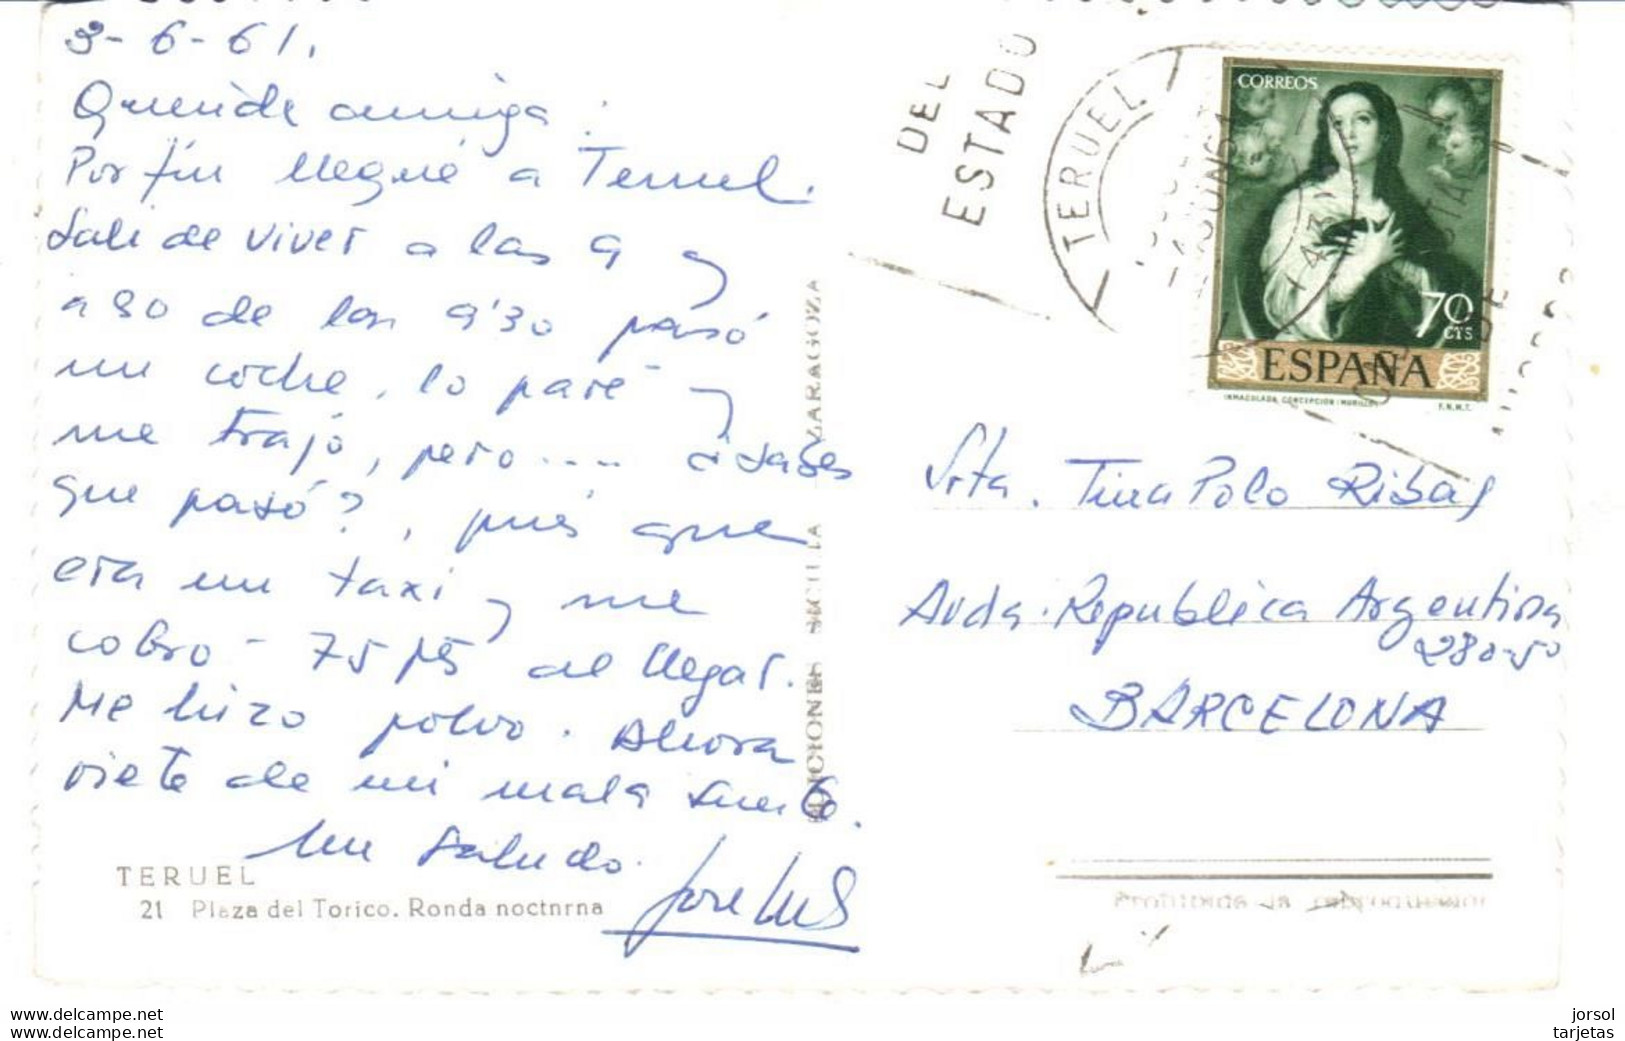 3-6-61.
Querida amiga:
Por fin llegué a Teruel.
Salí de viver a las 9 y
a eso de las 9'30 pasó
un coche, lo paré y
me trajó, pero.... ¿sabes
que pasó?, pués que
era un taxi y me
cobro - 75 pts al llegar.
Me hizo polvo. Ahora
riete de mi mala suerte.
Un saludo.
José Luis
TERUEL
21 Plaza del Torico. Ronda noctnrna
EDICIONES SICILIA ZARAGOZA
DEL
ESTADO
TERUEL
CORREOS
70
CTS
ESPAÑA
INMACULADA CONCEPCION (MURILLO)
F.N.M.T.
Srta. Tina Polo Ribas
Avda. Republica Argentina
280-5º
BARCELONA
Prohibida la reproducción
www.delcampe.net
www.delcampe.net
jorsol
tarjetas